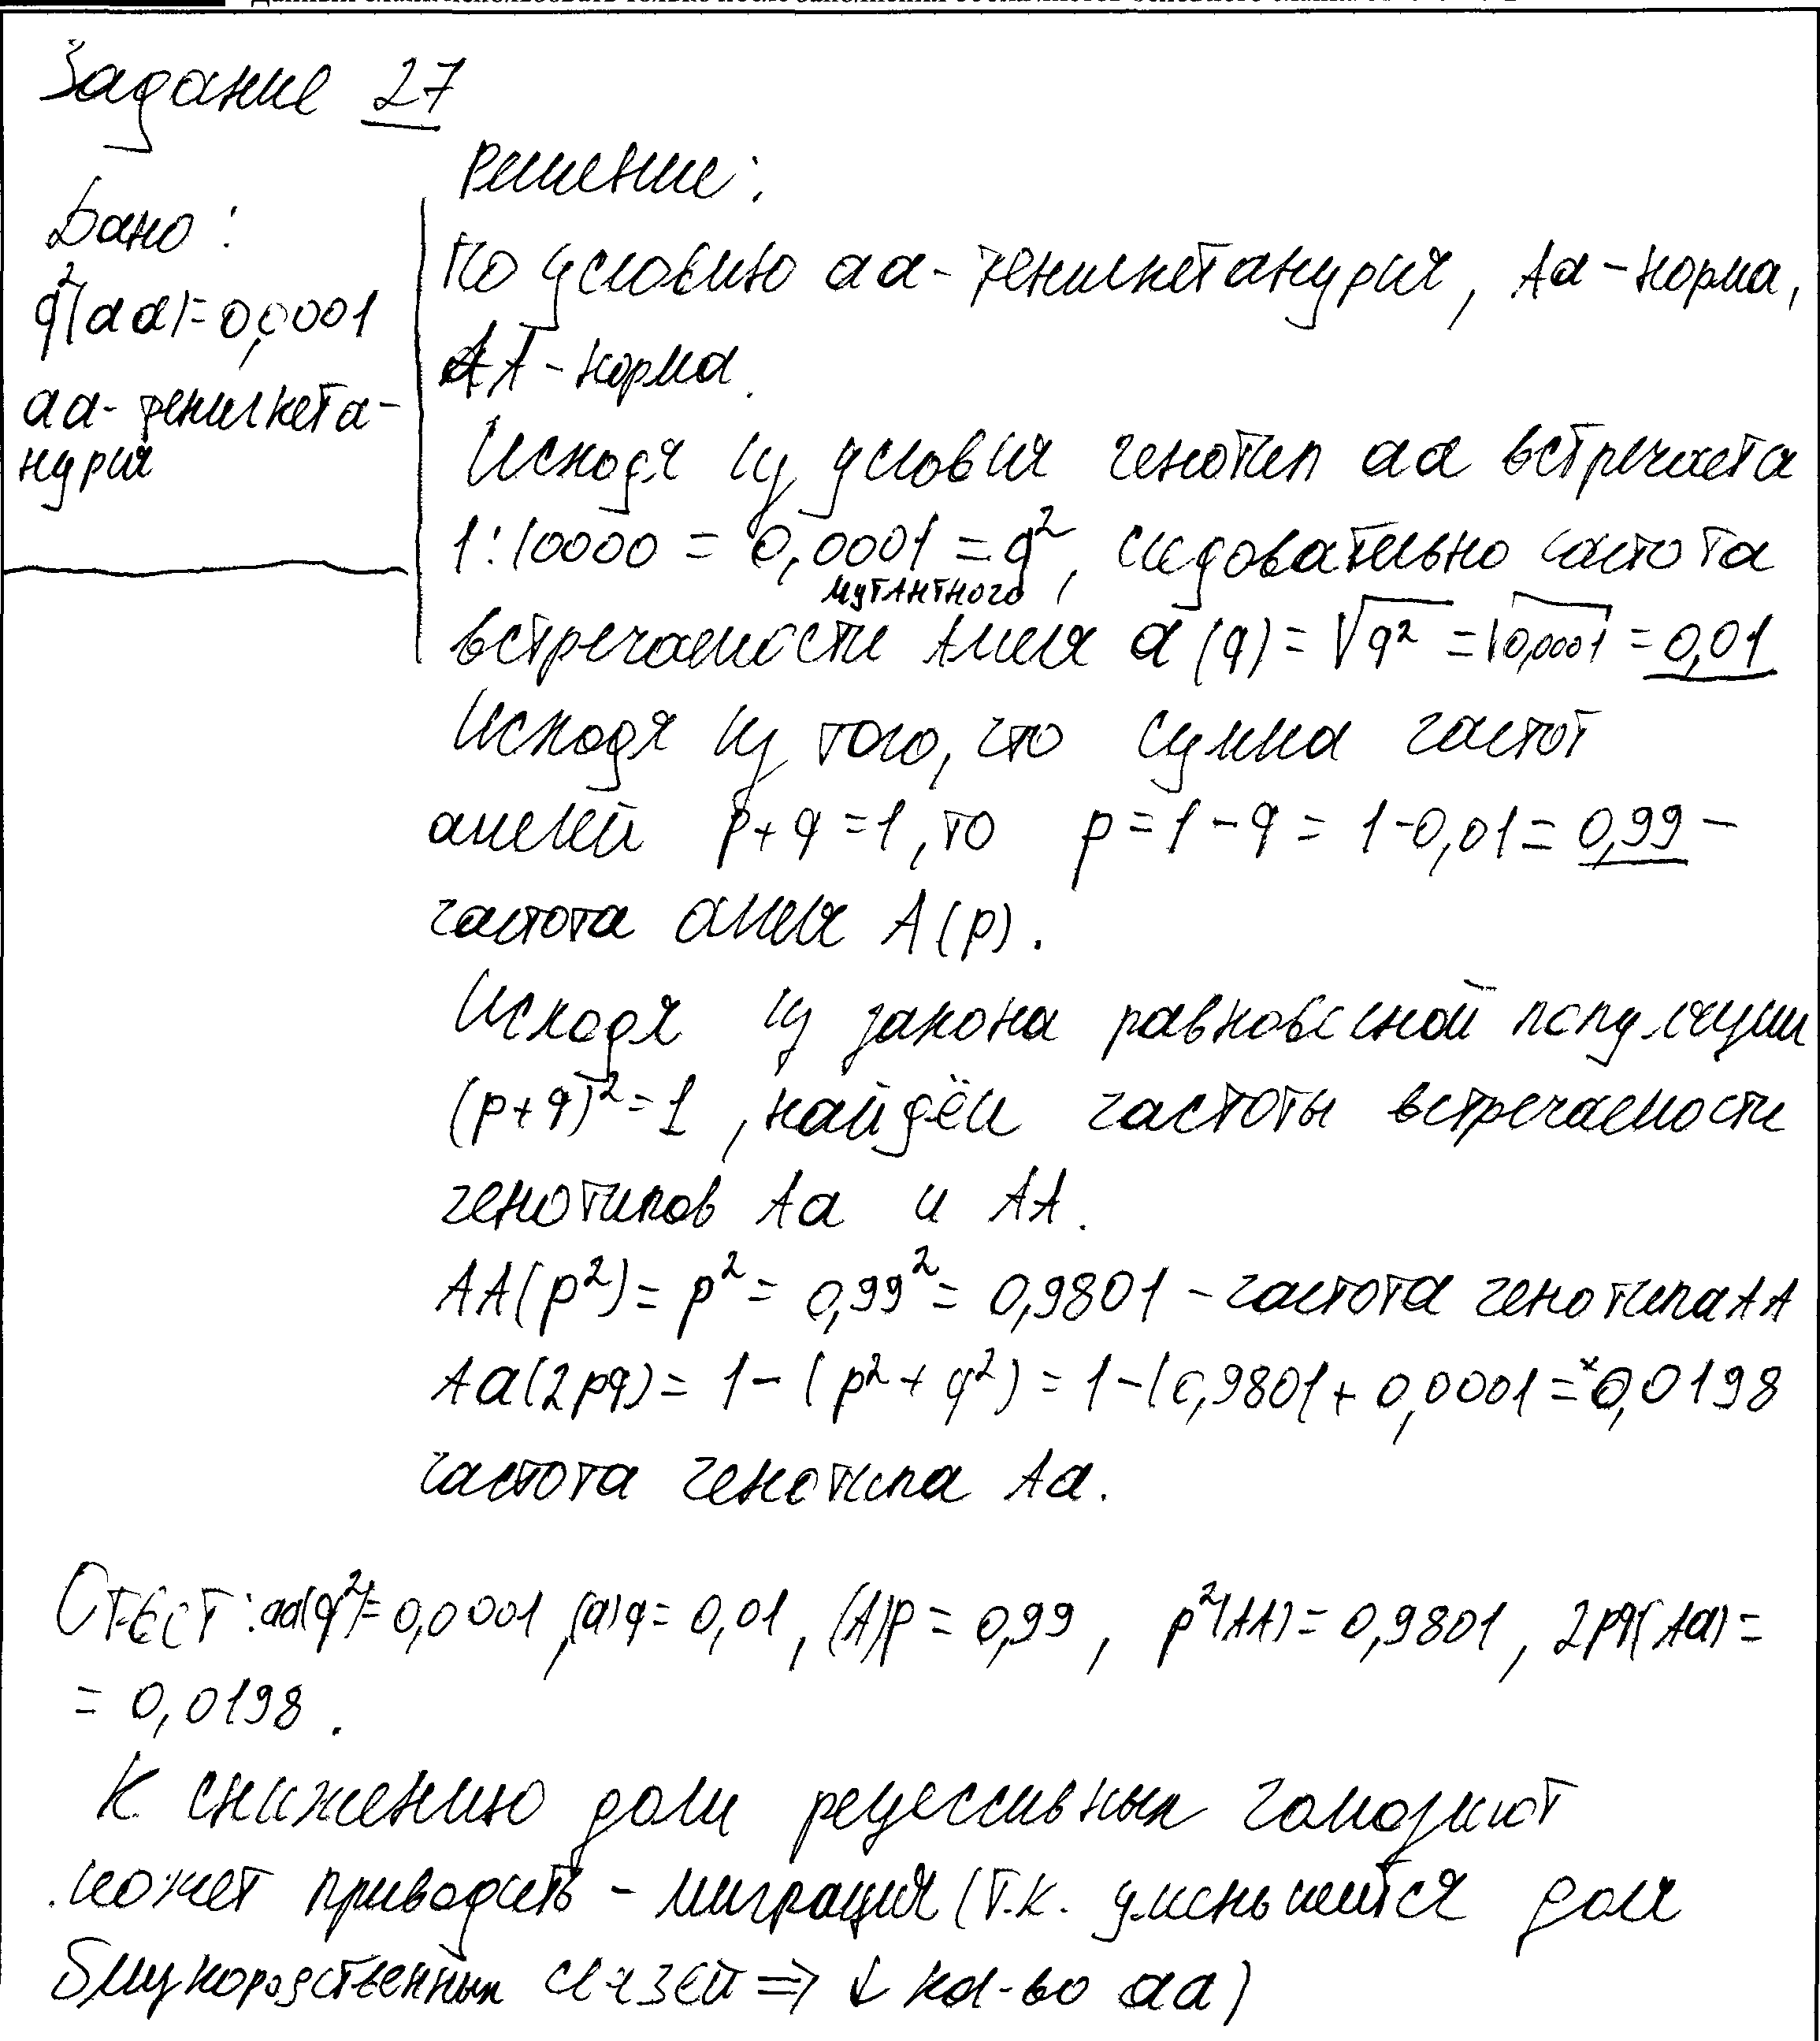 Задание 27
Решение:
Дано:
q²(aa)=0,0001
aa- фенилкета-
нурия
По условию aa- фенилкетанурия, Aa - норма,
AA - норма.
Исходя из условия генотип aa встречается
1:10000 = 0,0001 = q², следовательно частота
мутантного
встречаемости аллеля a (q) = √q² = √0,0001 = 0,01
Исходя из того, что сумма частот
аллелей p+q=1, то p=1-q=1-0,01=0,99 -
частота аллеля A(p).
Исходя из закона равновесной популяции
(p+q)²=1, найдём частоты встречаемости
генотипов Aa и AA.
AA(p²)= p² = 0,99² = 0,9801 - частота генотипа AA
Aa(2pq)= 1-(p²+q²) = 1-(0,9801+0,0001 = 0,0198
частота генотипа Aa.
Ответ: aa(q²)=0,0001, (a)q=0,01, (A)p=0,99, p²(AA)=0,9801, 2pq(Aa)=
=0,0198.
К снижению доли рецессивных гомозигот
может приводить - миграция (т.к. уменьшится доля
близкородственных связей => ↓ кол-во aa)